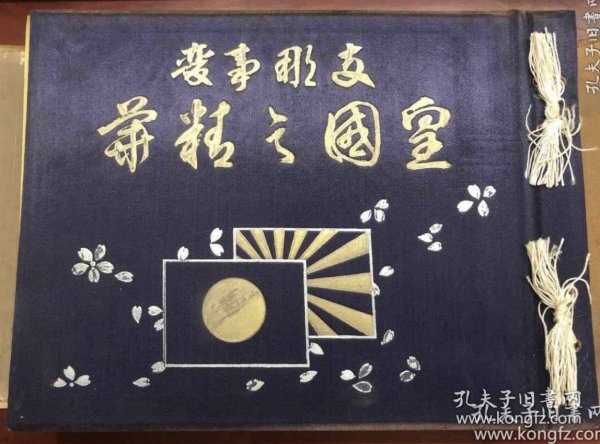 支那事變
皇國之精華
孔夫子旧書网
www.kongfz.com
孔夫子旧書网
www.kongfz.com